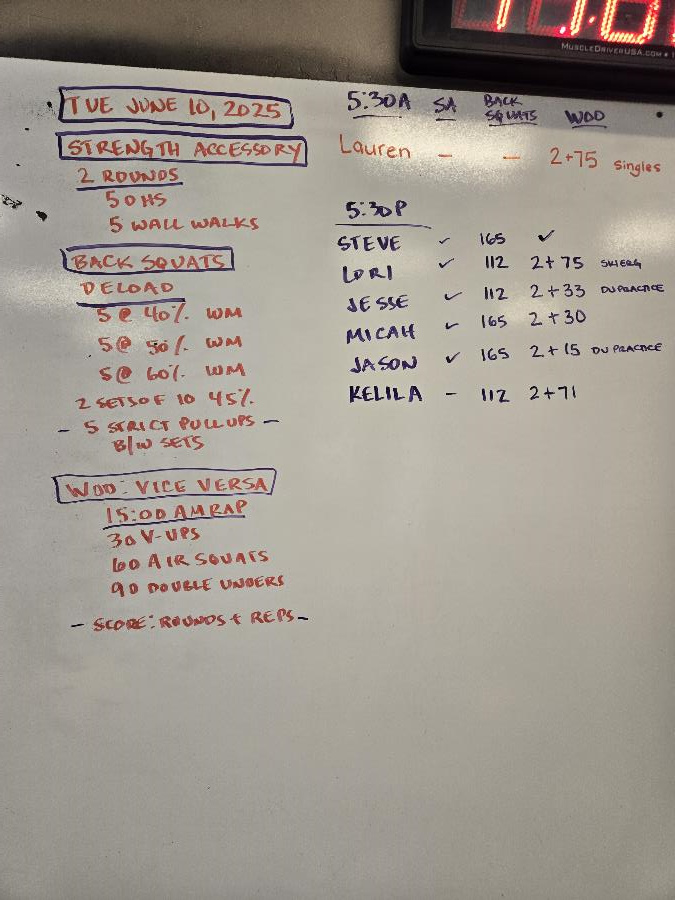 MUSCLEDRIVERUSA.COM
TUE JUNE 10, 2025
STRENGTH ACCESSORY
2 ROUNDS
5 OHS
5 WALL WALKS
BACK SQUATS
DELOAD
5 @ 40% WM
5 @ 50% WM
5 @ 60% WM
2 SETS OF 10 45%
- 5 STRICT PULLUPS -
B/W SETS
WOD: VICE VERSA
15:00 AMRAP
30 V-UPS
60 AIR SQUATS
90 DOUBLE UNDERS
- SCORE: ROUNDS + REPS -
5:30A SA BACK SQUATS WOD
Lauren - - 2+75 singles
5:30P
STEVE ✓ 165 ✓
LORI ✓ 112 2+75 SKIERG
JESSE ✓ 112 2+33 DU PRACTICE
MICAH ✓ 165 2+30
JASON ✓ 165 2+15 DU PRACTICE
KELILA - 112 2+71